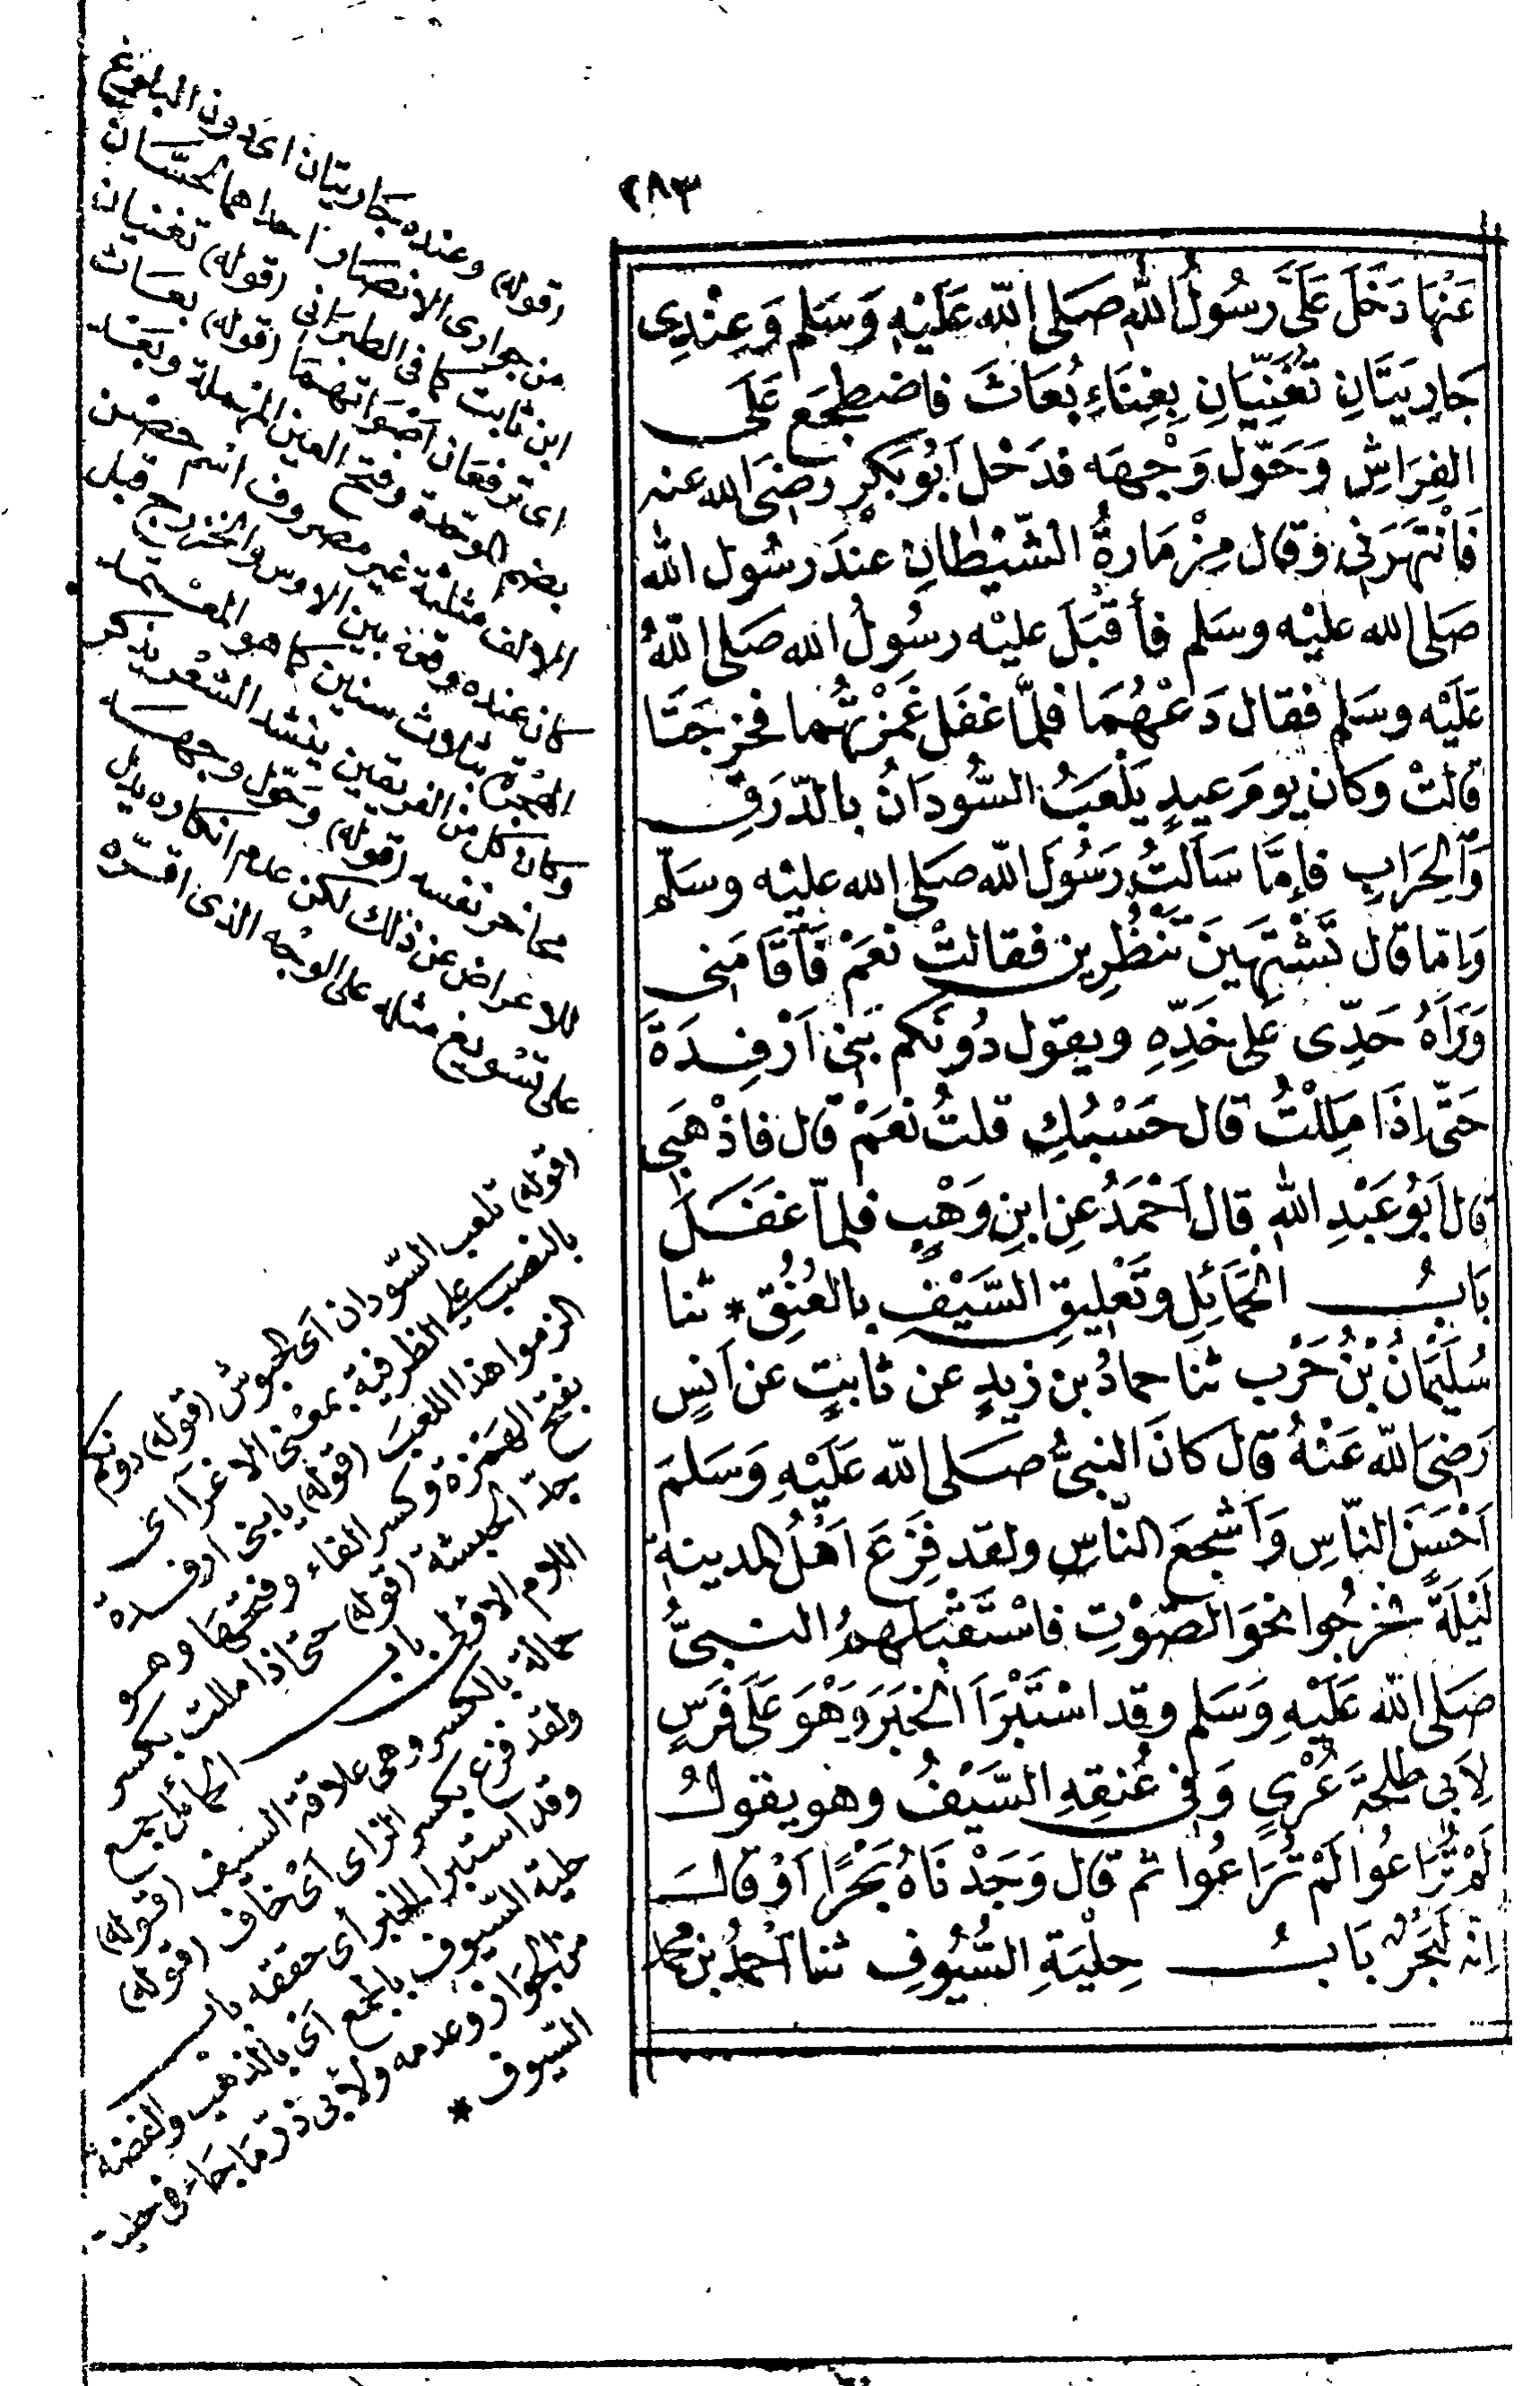 ٢٨٣
عَنْهَا دَخَلَ عَلَىَّ رسُولُ اللّٰهِ صَلى اللّٰه عَلَيْهِ وَسَلم وَعِنْدِى
جَارِيَتَانِ تُغَنِّيَانِ بِغِنَاءِ بُعَاثَ فاضطجَع عَلَى
الفِرَاشِ وَحَوّل وَجْهَه فدَخل اَبُو بَكرٍ رضىَ الله عنه
فَانْتَهَرَنِى وقال مِزْمَارةُ الشّيْطانِ عندَ رسُول الله
صَلى الله عليْه وسَلم فأقْبَلَ عليْه رسُولُ الله صَلى اللّٰهُ
عَلَيْه وسَلم فقال دَعْهُمَا فلمّا غفَل غَمَزْتُهُما فخرجَتَا
قالتْ وَكان يومَ عِيدٍ يَلْعَبُ السُّودَانُ بالدّرَقِ
وَالحِرَابِ فاِمَّا سَاَلتُ رَسُولَ اللّٰه صَلى الله عليْه وسَلّم
وَاِمّا قال تَشْتَهِينَ تَنْظُرِين فقالتْ نعَمْ فَاَقَامَنى
وَرَاءَهُ خَدِّى عَلى خَدِّهِ ويقول دُونكم بَنِى اَرْفِدَةَ
حَتّى اِذَا مَلِلْتُ قال حَسْبُكِ قلتُ نعَمْ قال فاذْهَبِى
قال اَبُو عَبْدِ اللهِ قال اَحْمَدُ عن ابنِ وَهْبٍ فلمّا غفَلَ
بَابُ الحَمَائِلِ وَتَعْلِيقِ السَّيْفِ بالعُنُقِ * ثنا
سُلَيْمَانُ بْنُ حَرْب ثنَا حمادُ بن زيدٍ عن ثابتٍ عن اَنسٍ
رَضِىَ اللّٰه عَنْهُ قال كانَ النبىُّ صَلى اللّٰه عَلَيْهِ وَسَلمَ
اَحْسَنَ النّاسِ وَاَشْجعَ النّاسِ ولقد فزِعَ اَهْلُ المدينةِ
لَيْلَةً فخرجُوا نحوَ الصّوْتِ فاسْتَقْبَلهمُ النبىُّ
صَلى اللّٰه عَلَيْهِ وَسَلم وقد اسْتَبْرَاَ الخبَرَ وَهْوَ عَلَى فَرَسٍ
لاَبِى طلحَةَ عُرْىٍ وَفى عُنقِهِ السَّيْفُ وهو يقولُ
لَمْ تُرَاعُوا لَمْ تُرَاعُوا ثم قال وَجَدْنَاهُ بَحْرًا اَوْ قال
اِنّه لَبَحْرٌ بَابُ حِلْيَةِ السُّيُوفِ ثنا اَحْمَدُ بن محمد
(قوله) وعنده جاريتان اى دون البلوغ
من جوارى الانصار احداهما لحسّان
ابن ثابت كما فى الطبرانى (قوله) تغنيان
اى ترفعان اصواتهما (قوله) بعاث
بضم الموحدة وفتح العين المهملة وبعد
الالف مثلثة غير مصروف اسم حصن
كان عنده وقعة بين الاوس والخزرج قبل
الهجرة بثلاث سنين كما هو المعتمد
وكان كل من الفريقين ينشد الشعر يذكر
مفاخر نفسه (قوله) وحوّل وجهه
للاعراض عن ذلك لكن عدم انكاره يدل
على تسويغ مثله على الوجه الذى اقرّه
(قوله) تلعب السّودان اى الحبوش (قوله) دونكم
بالنصب على الظرفية بمعنى الاغراء اى
الزموا هذا اللعب (قوله) يا بنى ارفدة
بفتح الهمزة وكسر الفاء وفتحها وهو
جدّ الحبشة (قوله) حتى اذا مللت بكسر
اللام الاولى باب الحمائل جمع
حمالة بالكسر وهى علاقة السيف (قوله)
ولقد فزع بكسر الزاى اى خاف (قوله)
وقد استبرا الخبر اى حققه باب
حلية السيوف بالجمع اى بالذهب والفضة
من الجواز وعدمه ولابى ذر ما جاء فى حلية
السيوف *